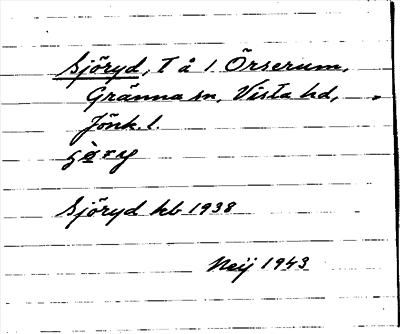 Sjöryd, T å 1 Örserum,
Gränna sn, Vista hd,
Jönk. l.
Sjöryd kb 1938
Neij 1943